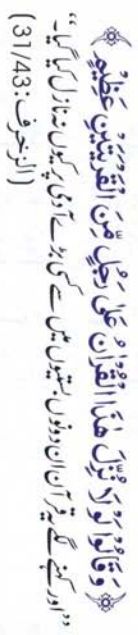 ﴿وَقَالُوا لَوْ لَا نُزِّلَ هٰذَا الْقُرْاٰنُ عَلٰى رَجُلٍ مِّنَ الْقَرْيَتَيْنِ عَظِيْمٍ﴾
”اور کہنے لگے یہ قرآن ان دونوں بستیوں میں سے کسی بڑے آدمی پر کیوں نہ نازل کیا گیا۔“
(الزخرف:31/43)